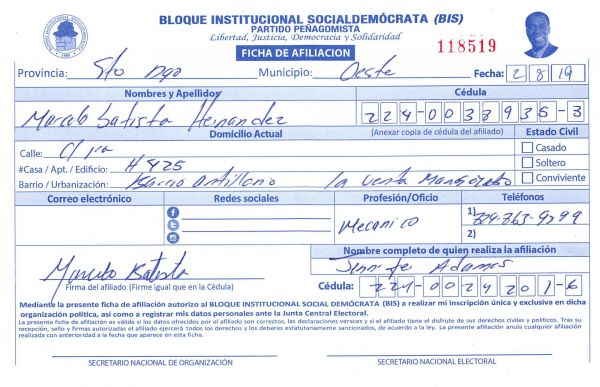 BLOQUE INSTITUCIONAL SOCIALDEMÓCRATA (BIS)
PARTIDO PEÑAGOMISTA
Libertad, Justicia, Democracia y Solidaridad
FICHA DE AFILIACION
118519
Provincia: Sto Dgo Municipio: Oeste Fecha: 2 8 19
Nombres y Apellidos Cédula
Marcelo Batista Hernandez 224-0037935-3
Domicilio Actual (Anexar copia de cédula del afiliado) Estado Civil
Calle: C/ Casado
#Casa / Apt. / Edificio: #425 Soltero
Barrio / Urbanización: Barrio Antillano la Venta Manoguayabo Conviviente
Correo electrónico Redes sociales Profesión/Oficio Teléfonos
Mecanico 1) 829-863-9299
2)
Nombre completo de quien realiza la afiliación
Marcelo Batista Jennife Adames
Firma del afiliado (Firme igual que en la Cédula) Cédula: 224-0024201-6
Mediante la presente ficha de afiliación autorizo al BLOQUE INSTITUCIONAL SOCIAL DEMÓCRATA (BIS) a realizar mi inscripción única y exclusiva en dicha
organización política, así como a registrar mis datos personales ante la Junta Central Electoral.
La presente ficha de afiliación es válida si los datos ofrecidos por el afiliado son correctos, las declaraciones veraces y si el afiliado tiene el disfrute de sus derechos civiles y políticos. Tras su
recepción, sello y firmas autorizadas el afiliado ejercerá todos los derechos y los deberes estatutariamente sancionados, de acuerdo a la ley. La presente afiliación anula cualquier afiliación
realizada con anterioridad a la fecha que aparece en esta ficha.
SECRETARIO NACIONAL DE ORGANIZACIÓN SECRETARIO NACIONAL ELECTORAL